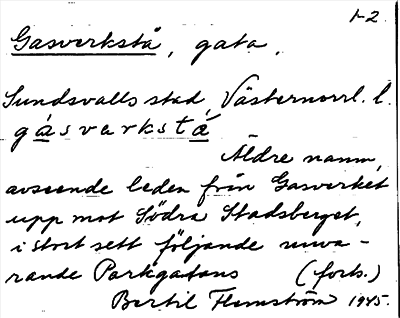 1-2.
Gasverkstå, gata.
Sundsvalls stad, Västernorrl. l.
gásvarkstá
Äldre namn,
avseende leden från Gasverket
upp mot Södra Stadsberget,
i stort sett följande nuva-
rande Parkgatans (forts.)
Bertil Flemström 1945.